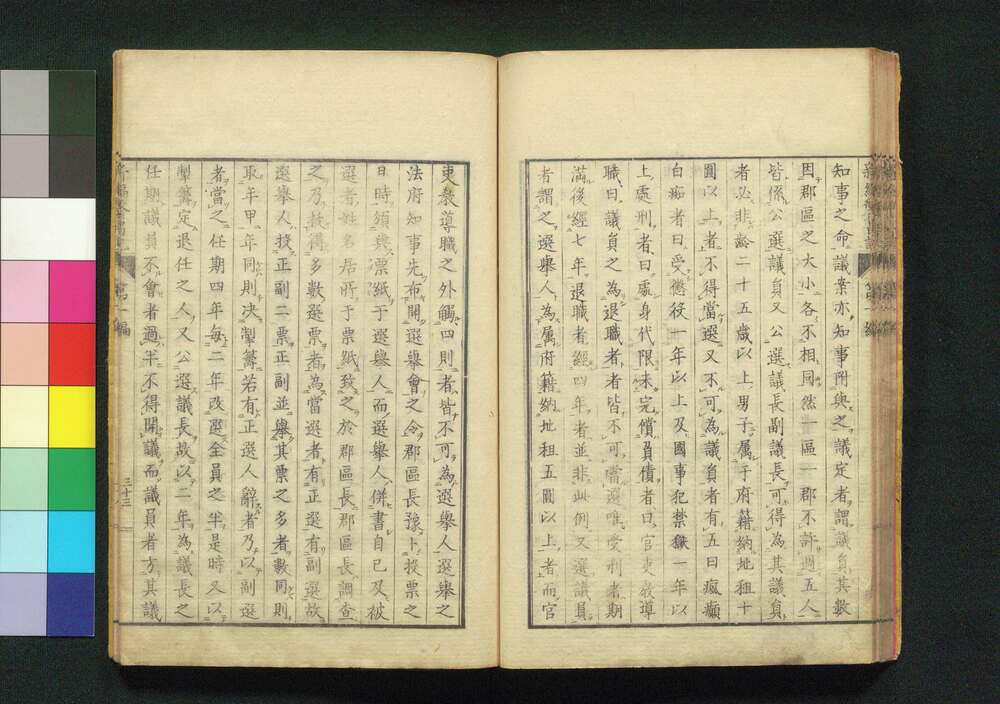 知事之命議案亦知事附與之議定者謂議員其數
因郡區之大小各不相同然一區一郡不許過五人
皆係公選議員又公選議長副議長可得為其議員
者必非齡二十五歲以上男子屬于府籍納地租十
圓以上者不得當選又不可為議員者有五曰瘋癲
白痴者曰受懲役一年以上及國事犯禁獄一年以
上處刑者曰處身代限未完償負債者曰官吏教導
職曰議員之為退職者者皆不可當選唯受刑者期
滿後經七年退職者經四年者並非此例又選議員
者謂之選舉人為屬府籍納地租五圓以上者而官
吏教導職之外觸四則者皆不可為選舉人選舉之
法府知事先布開選舉會之令郡區長豫卜投票之
日時頒與票紙于選舉人而選舉人併書自己及被
選者姓名居所于票紙致之於郡區長郡區長調查
之乃於得多數選票者為當選者有正選有副選故
選舉人投正副二票正副並舉其票之多者數同則
取年甲年同則决掣籌若有正選人辭者乃以副選
者當之任期四年每二年改選全員之半是時又以
掣籌定退任之人又公選議長故以二年為議長之
任期議員不會者過半不得開議而議員者方其議
第一編
三十三